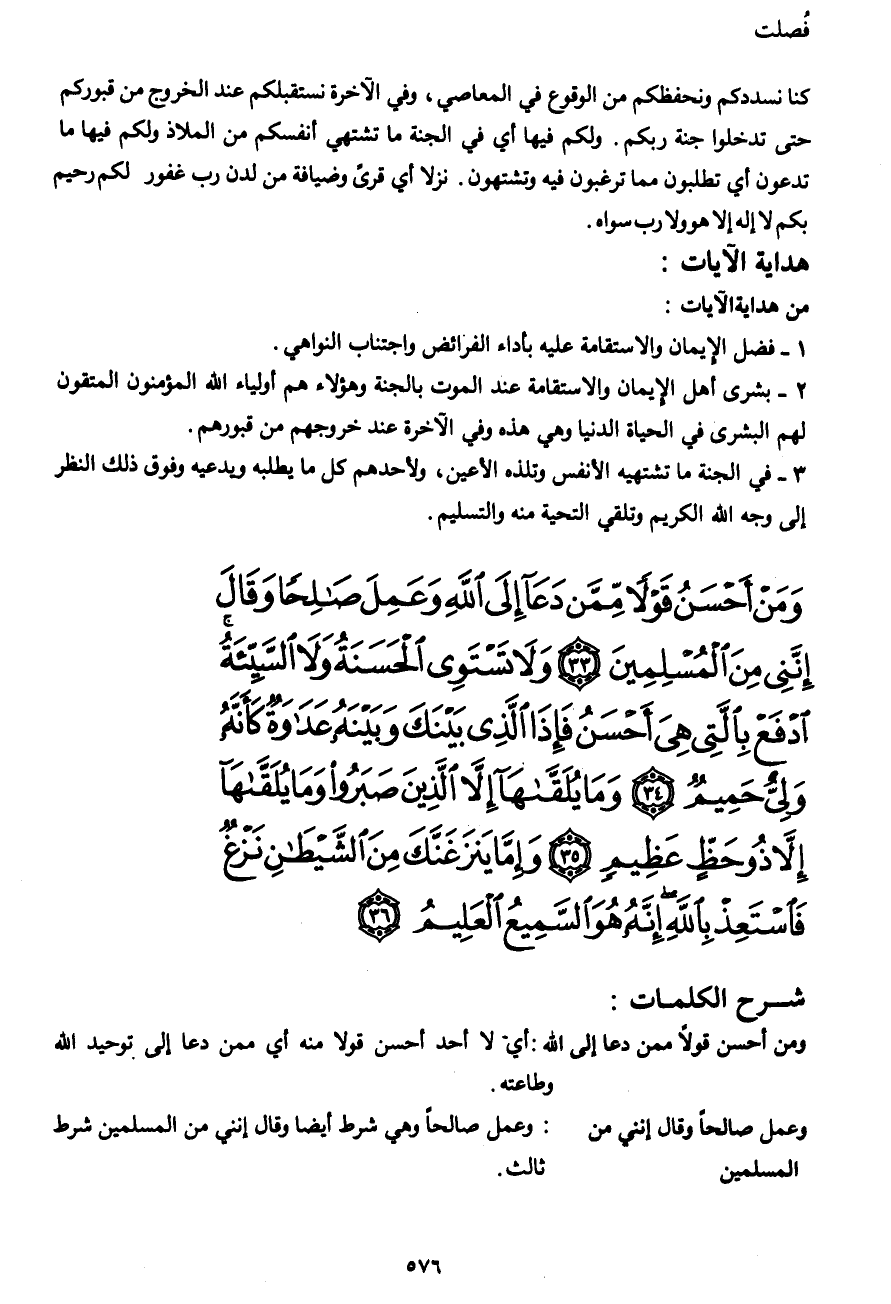 فُصلت
كنا نسددكم ونحفظكم من الوقوع في المعاصي، وفي الآخرة نستقبلكم عند الخروج من قبوركم
حتى تدخلوا جنة ربكم. ولكم فيها أي في الجنة ما تشتهي أنفسكم من الملاذ ولكم فيها ما
تدعون أي تطلبون مما ترغبون فيه وتشتهون. نزلا أي قرىً وضيافة من لدن رب غفور لكم رحيم
بكم لا إله إلا هو ولا رب سواه.
هداية الآيات :
من هداية الآيات :
١ ـ فضل الإيمان والاستقامة عليه بأداء الفرائض واجتناب النواهي.
٢ ـ بشرى أهل الإيمان والاستقامة عند الموت بالجنة وهؤلاء هم أولياء الله المؤمنون المتقون
لهم البشرى في الحياة الدنيا وهي هذه وفي الآخرة عند خروجهم من قبورهم.
٣ ـ في الجنة ما تشتهيه الأنفس وتلذه الأعين، ولأحدهم كل ما يطلبه ويدعيه وفوق ذلك النظر
إلى وجه الله الكريم وتلقي التحية منه والتسليم.
وَمَنْ أَحْسَنُ قَوْلًا مِّمَّن دَعَآ إِلَى ٱللَّهِ وَعَمِلَ صَٰلِحًا وَقَالَ
إِنَّنِى مِنَ ٱلْمُسْلِمِينَ ٣٣ وَلَا تَسْتَوِى ٱلْحَسَنَةُ وَلَا ٱلسَّيِّئَةُ ۚ
ٱدْفَعْ بِٱلَّتِى هِىَ أَحْسَنُ فَإِذَا ٱلَّذِى بَيْنَكَ وَبَيْنَهُۥ عَدَٰوَةٌ كَأَنَّهُۥ
وَلِىٌّ حَمِيمٌ ٣٤ وَمَا يُلَقَّىٰهَآ إِلَّا ٱلَّذِينَ صَبَرُوا۟ وَمَا يُلَقَّىٰهَآ
إِلَّا ذُو حَظٍّ عَظِيمٍ ٣٥ وَإِمَّا يَنزَغَنَّكَ مِنَ ٱلشَّيْطَٰنِ نَزْغٌ
فَٱسْتَعِذْ بِٱللَّهِ ۖ إِنَّهُۥ هُوَ ٱلسَّمِيعُ ٱلْعَلِيمُ ٣٦
شـرح الكلمـات :
ومن أحسن قولاً ممن دعا إلى الله :أي لا أحد أحسن قولا منه أي ممن دعا إلى توحيد الله
وطاعته.
وعمل صالحاً وقال إنني من : وعمل صالحاً وهي شرط أيضا وقال إنني من المسلمين شرط
المسلمين ثالث.
٥٧٦